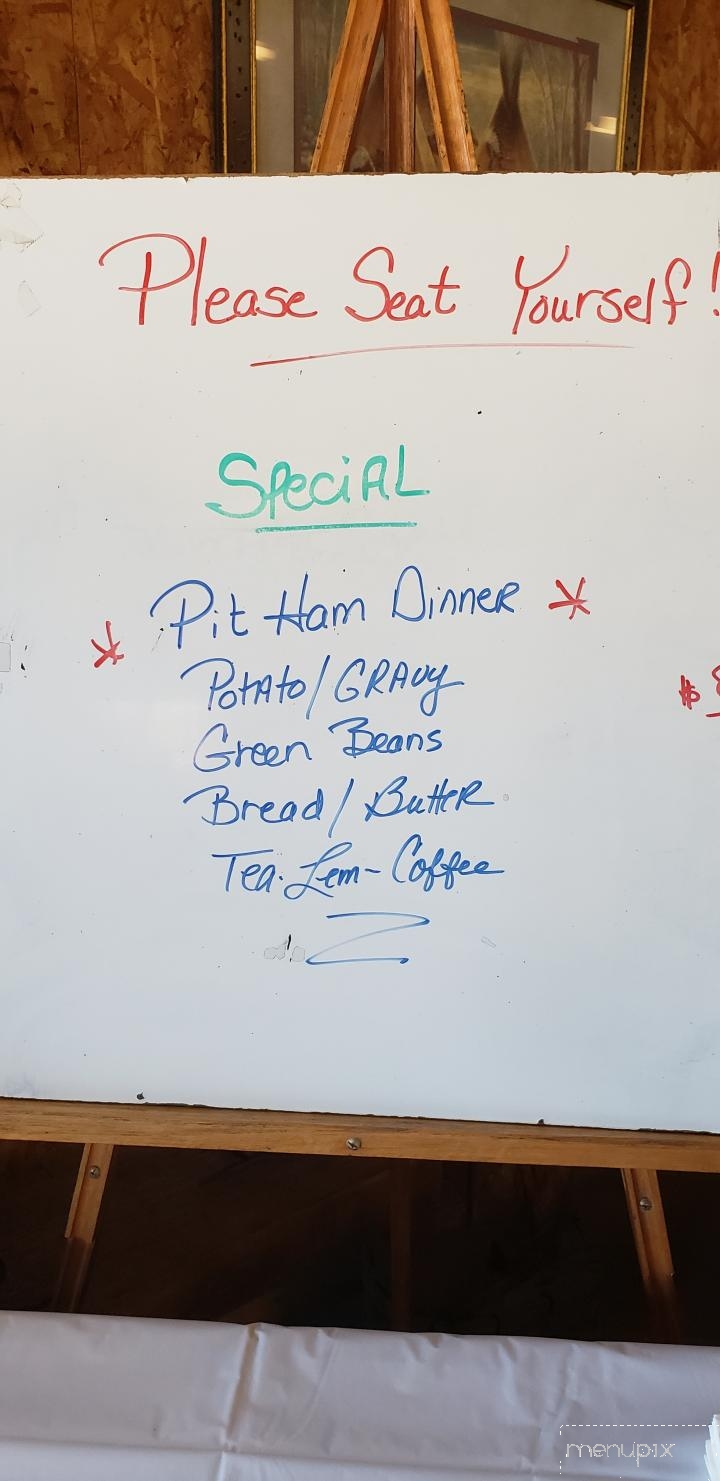 Please Seat Yourself!
SpeciAL
* Pit Ham Dinner *
Potato/GRAvy
$
Green Beans
Bread/Butter
Tea-Lem-Coffee
menupix